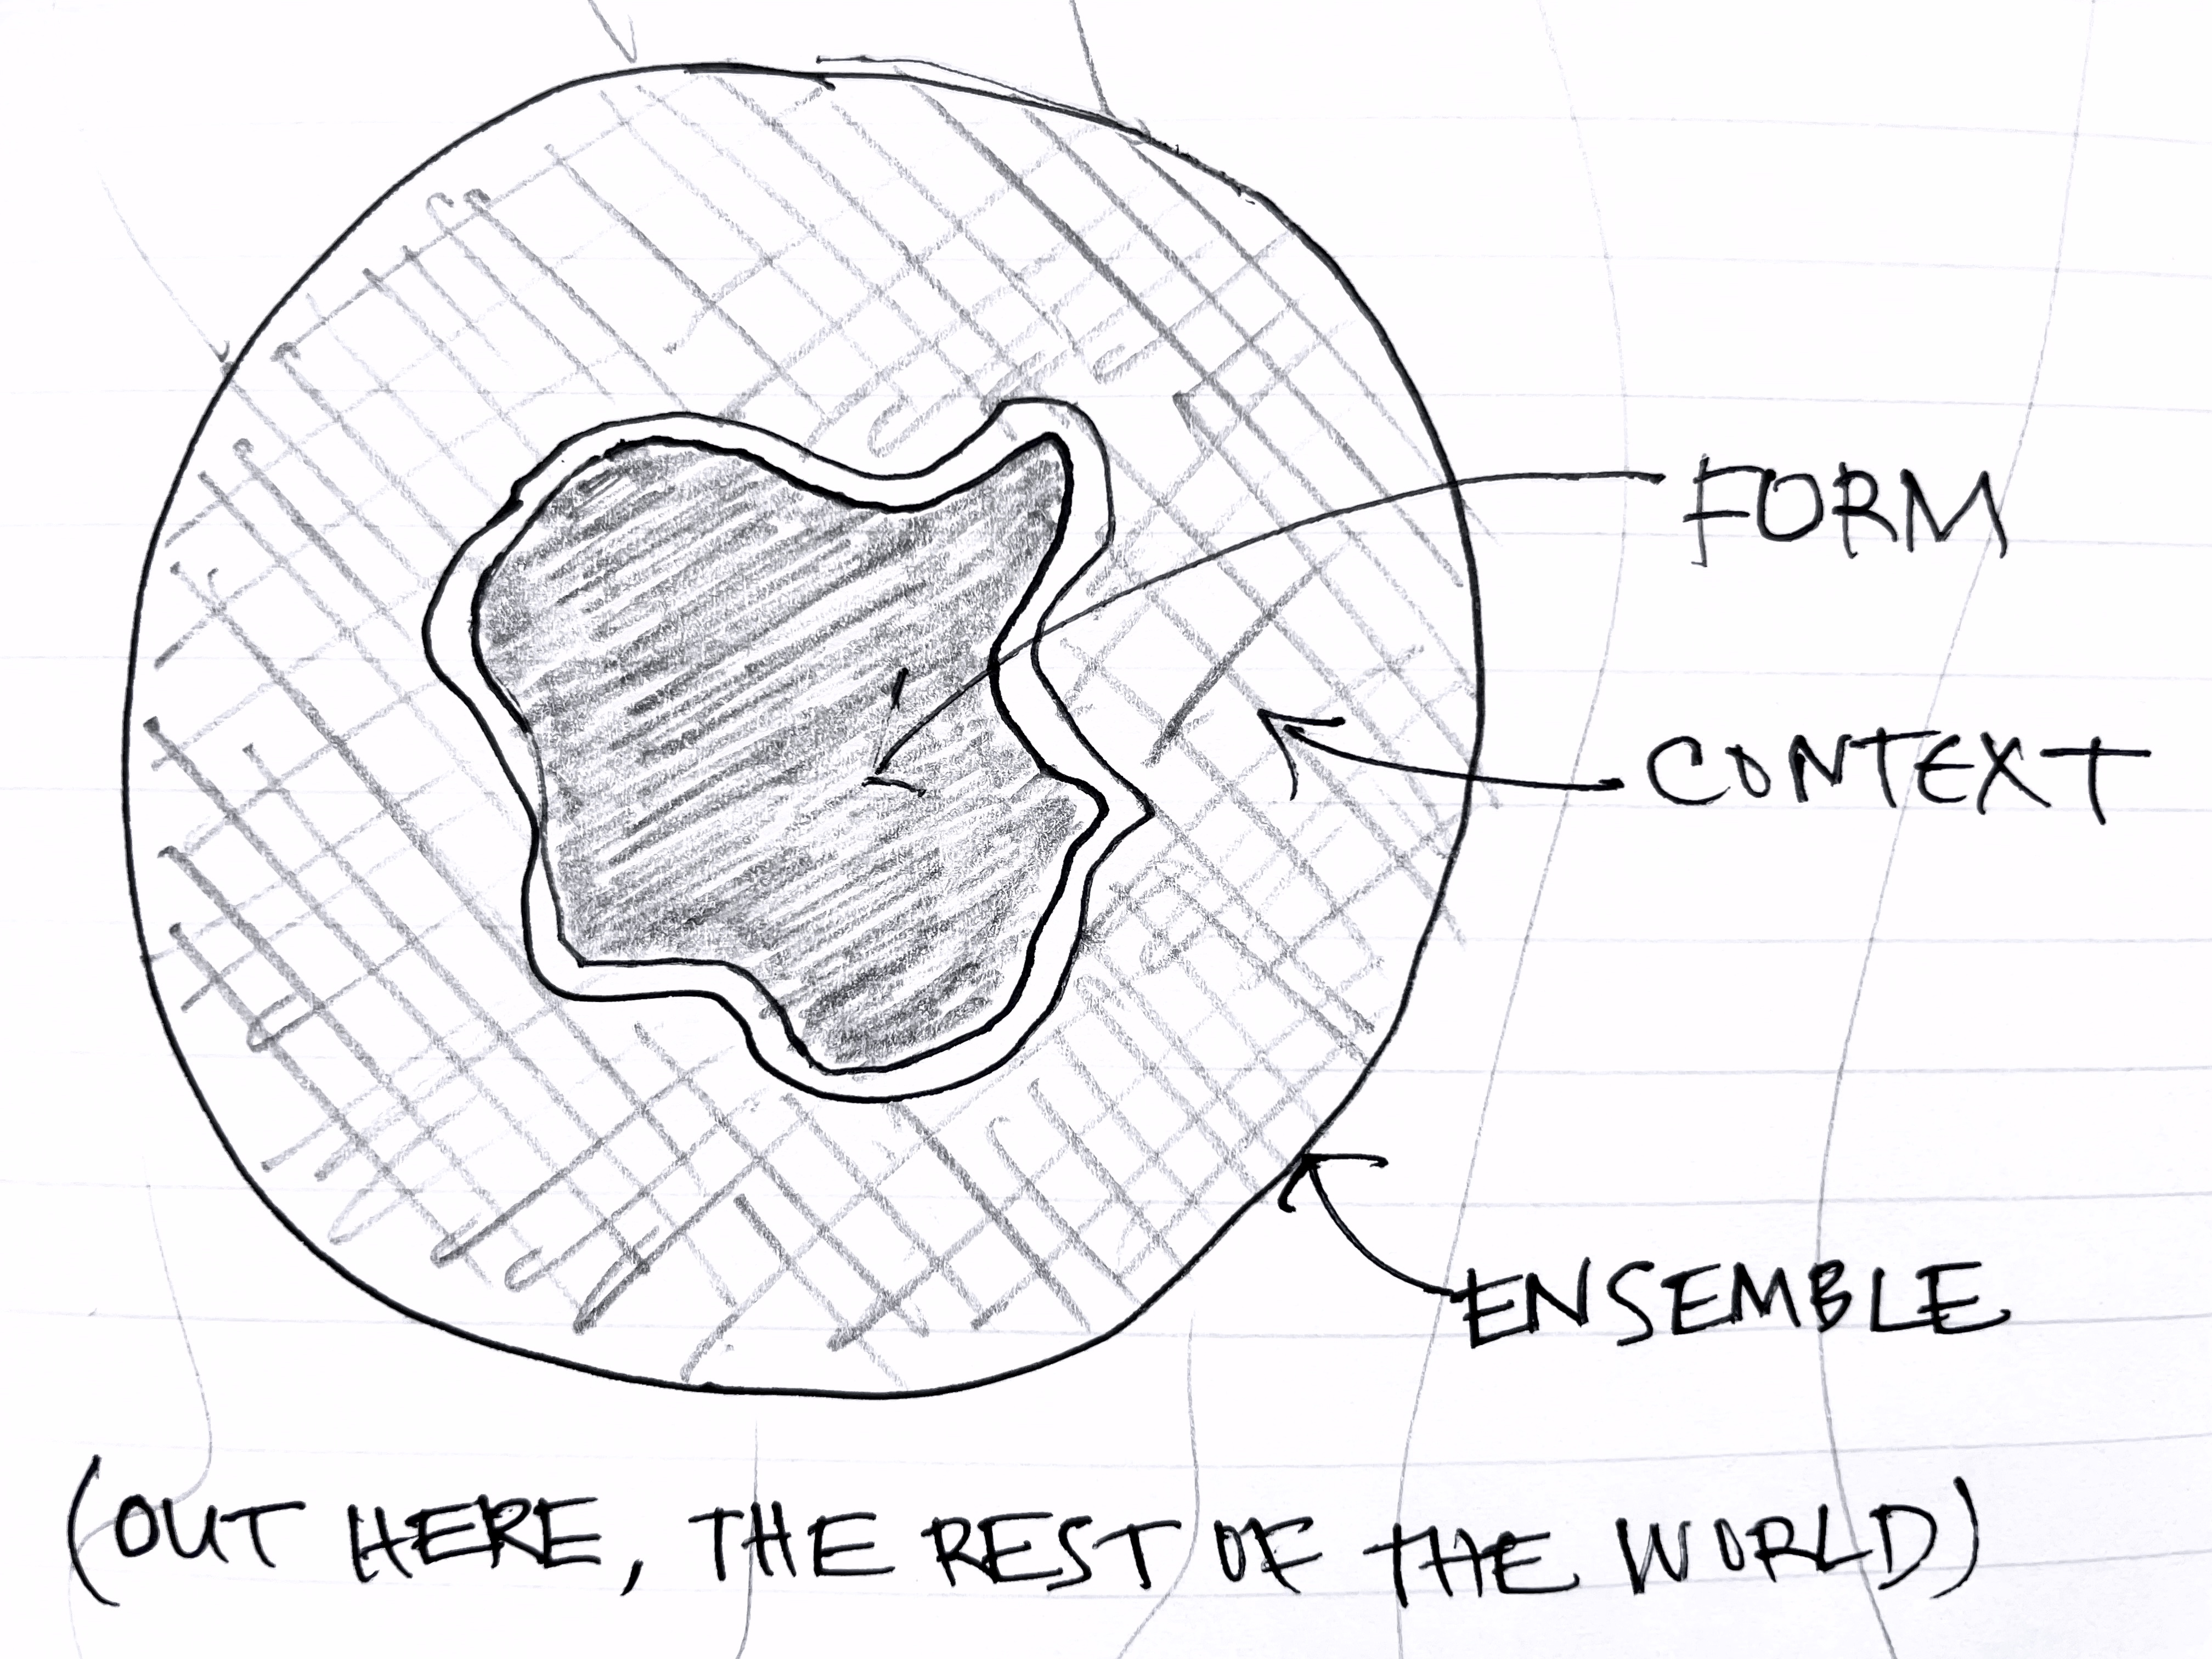 FORM
CONTEXT
ENSEMBLE
(OUT HERE, THE REST OF THE WORLD)